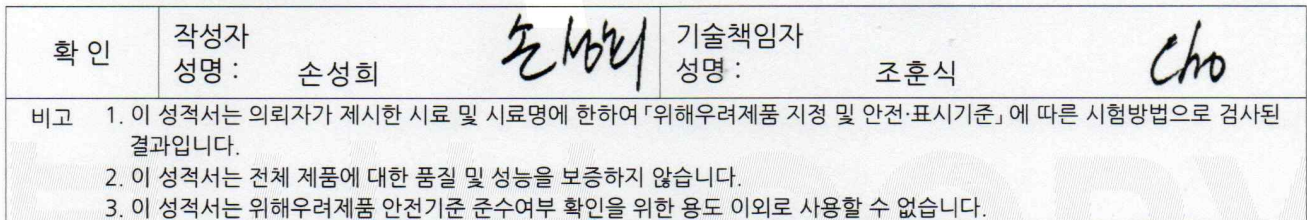 확 인 작성자 기술책임자
성명 : 손성희 손성희 성명 : 조훈식 Cho
비고 1. 이 성적서는 의뢰자가 제시한 시료 및 시료명에 한하여 「위해우려제품 지정 및 안전·표시기준」 에 따른 시험방법으로 검사된
결과입니다.
2. 이 성적서는 전체 제품에 대한 품질 및 성능을 보증하지 않습니다.
3. 이 성적서는 위해우려제품 안전기준 준수여부 확인을 위한 용도 이외로 사용할 수 없습니다.